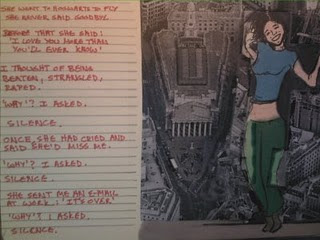 SHE WENT TO HOGWARTS TO FLY
SHE NEVER SAID GOODBYE.
BEFORE THAT SHE SAID:
'I LOVE YOU MORE THAN
YOU'LL EVER KNOW'
I THOUGHT OF BEING
BEATEN, STRANGLED,
RAPED.
'WHY'? I ASKED.
SILENCE.
ONCE SHE HAD CRIED AND
SAID SHE'D MISS ME.
'WHY'? I ASKED.
SILENCE.
SHE SENT ME AN E-MAIL
AT WORK: 'IT'S OVER'
'WHY'? I ASKED.
SILENCE.